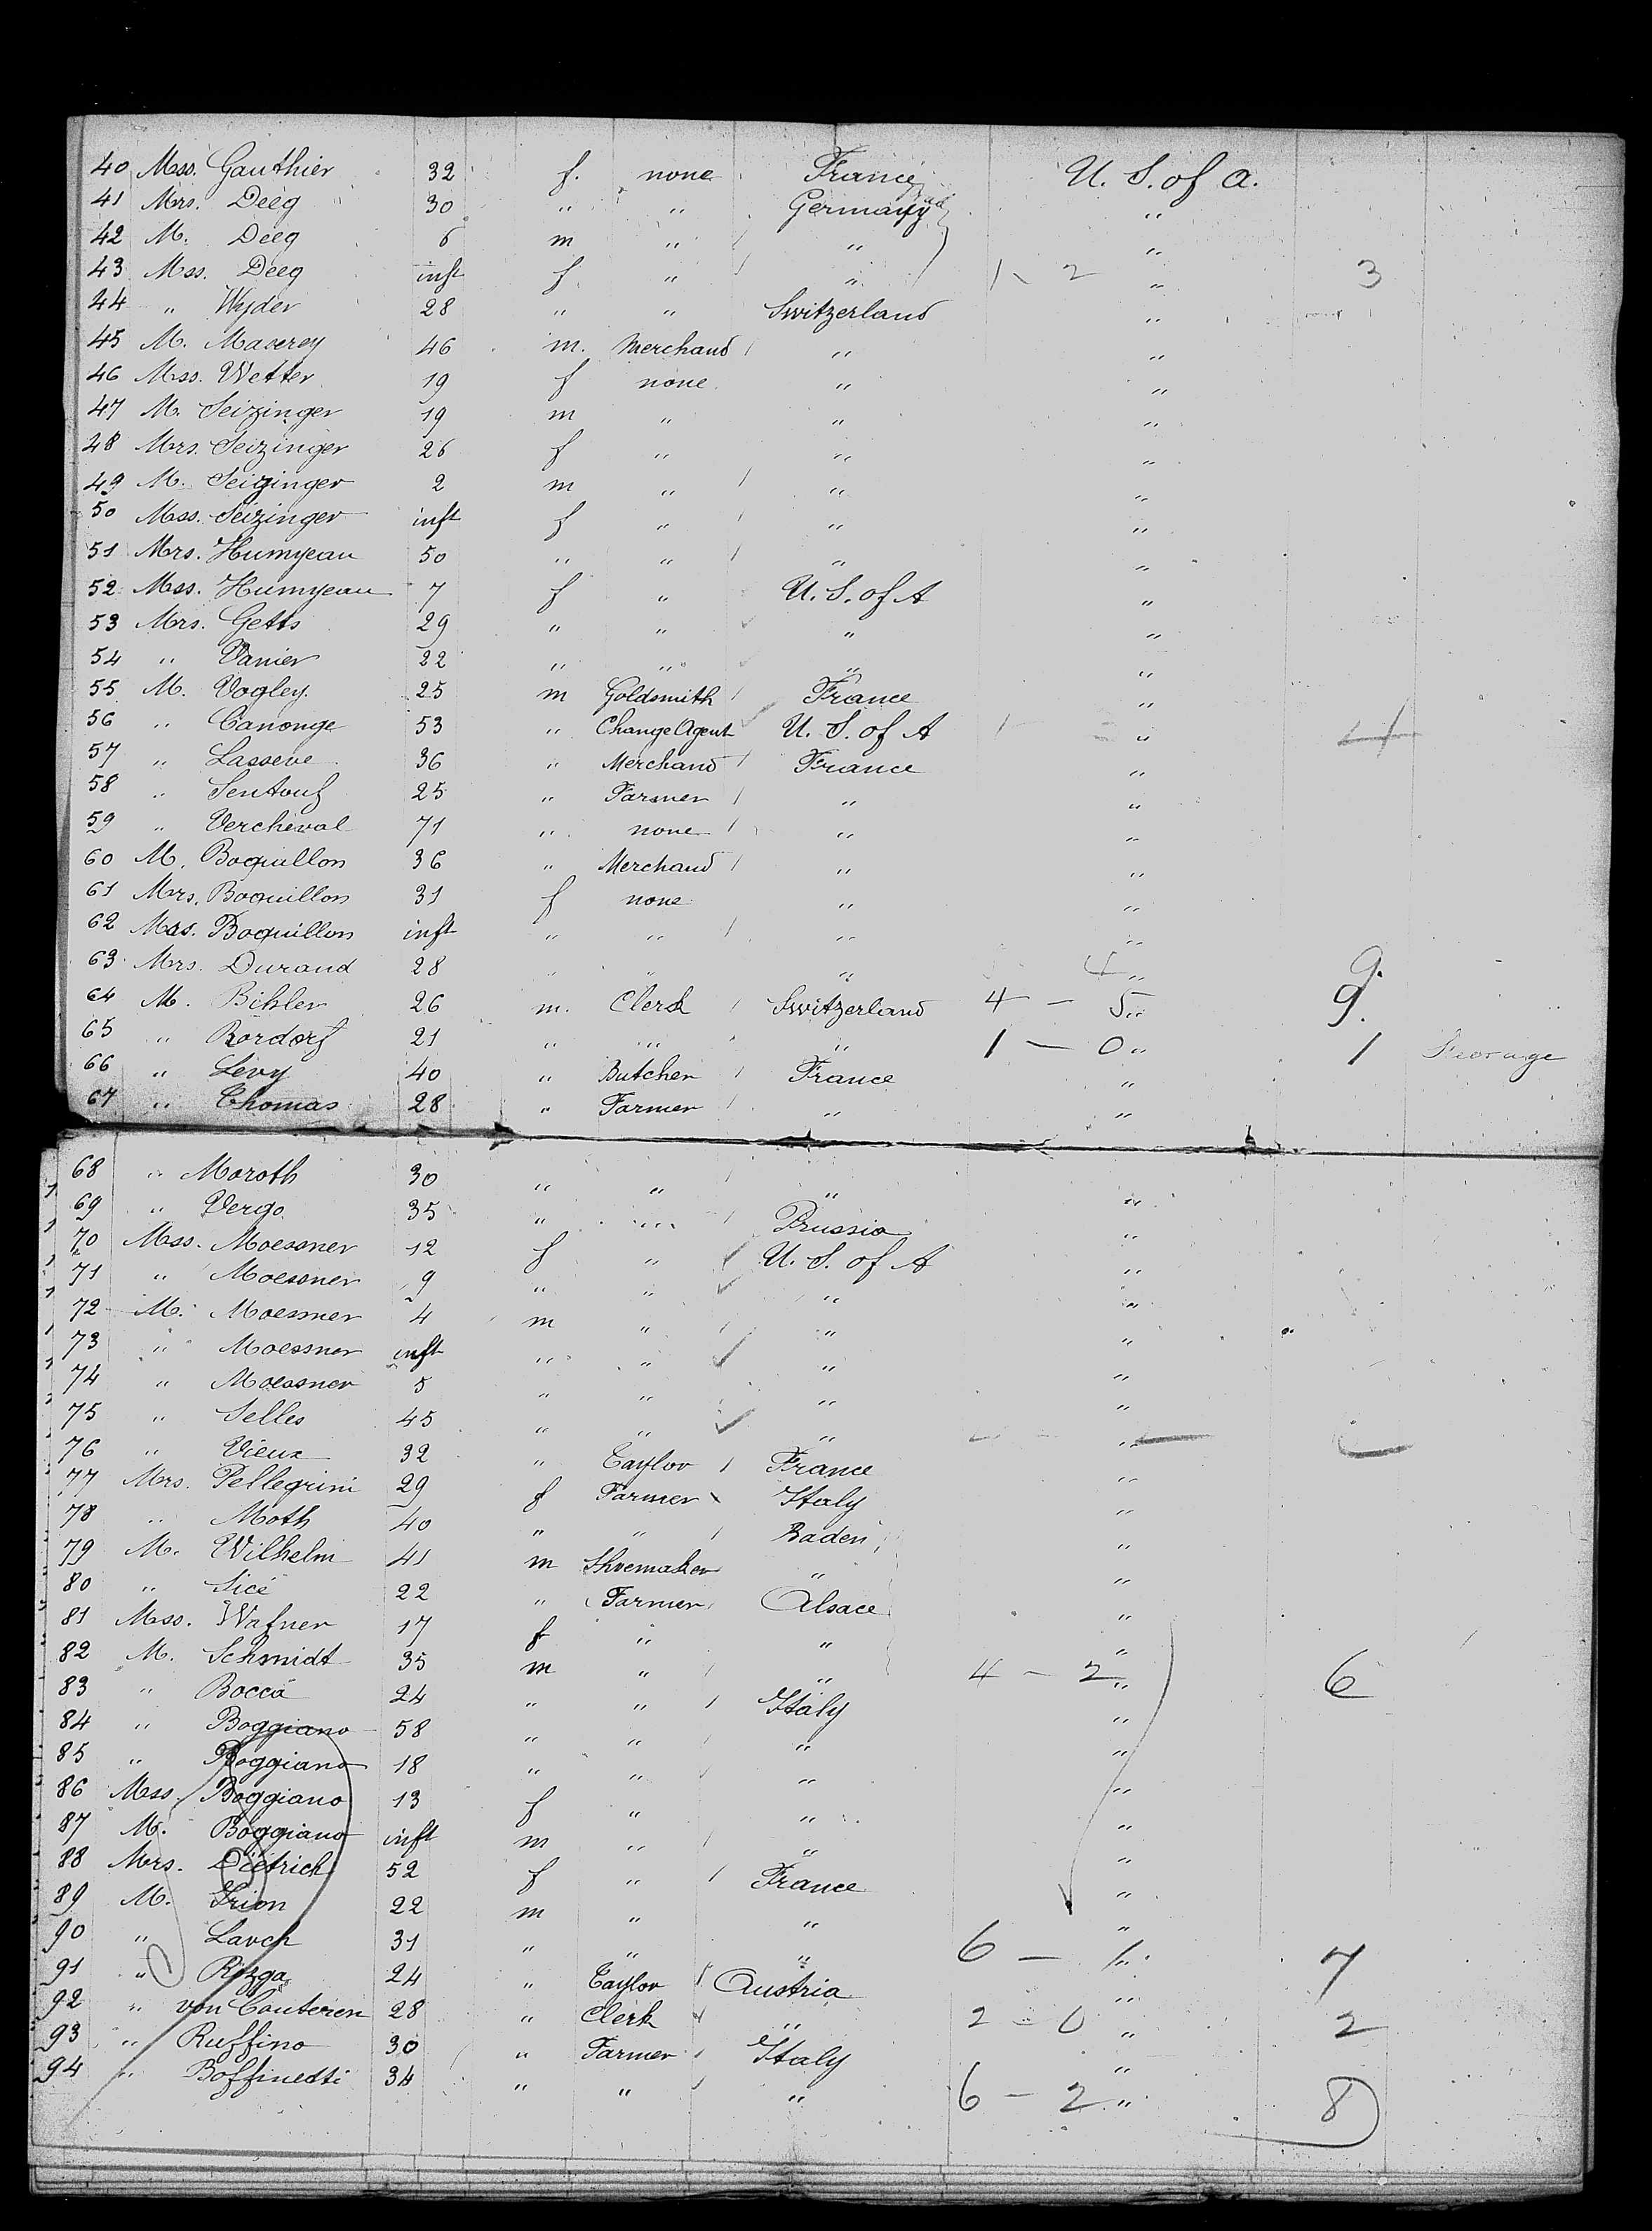 40 Mss. Gauthier 32 f. none France U. S. of a.
41 Mrs. Deeg 30 " " Germany "
42 M. Deeg 6 m " " "
43 Mss. Deeg inft f " " 1 - 2 " 3
44 " Wyder 28 " " Switzerland "
45 M. Maserey 46 m. Merchand " "
46 Mss. Wetter 19 f none " "
47 M. Seizinger 19 m " " "
48 Mrs. Seizinger 26 f " " "
49 M. Seizinger 2 m " " "
50 Mss. Seizinger inft f " " "
51 Mrs. Humyeau 50 " " " "
52 Mss. Humyeau 7 f " U. S. of A "
53 Mrs. Getts 29 " " " "
54 " Vanier 22 " " " "
55 M. Vogley 25 m Goldsmith France "
56 " Canonge 53 " Change Agent U. S. of A " 4
57 " Lasseve 36 " Merchand France "
58 " Sentouf 25 " Farmer " "
59 " Vercheval 71 " none " "
60 M. Boquillon 36 " Merchand " "
61 Mrs. Boquillon 31 f none " "
62 Mss. Boquillon inft " " " "
63 Mrs. Durand 28 " " " " 9.
64 M. Bihler 26 m. Clerck Switzerland 4 - 5 " 9.
65 " Rordorf 21 " " " 1 - 0 " 1 Steerage
66 " Levy 40 " Butcher France "
67 " Thomas 28 " Farmer " "
68 " Moroth 30 " " " "
69 " Vergo 35 " " Prussia "
70 Mss. Moessner 12 f " U. S. of A "
71 " Moessner 9 " " " "
72 M. Moessner 4 m " " "
73 " Moessner inft " " " "
74 " Moessner 5 " " " "
75 " Selles 45 " " " "
76 " Vieux 32 " Taylor France "
77 Mrs. Pellegrini 29 f Farmer Italy "
78 " Moth 40 " " Baden "
79 M. Wilhelm 41 m Shoemaker " "
80 " Sicé 22 " Farmer Alsace "
81 Mss. Wafner 17 f " " "
82 M. Schmidt 35 m " " 4 - 2 " 6
83 " Bocca 24 " " Italy "
84 " Boggiano 58 " " " "
85 " Boggiano 18 " " " "
86 Mss. Boggiano 13 f " " "
87 M. Boggiano inft m " " "
88 Mrs. Dietrich 52 f " France "
89 M. Irion 22 m " " "
90 " Lavch 31 " " " 6 - 1 " 7
91 " Rizga 24 " Taylor Austria "
92 " von Couteren 28 " Clerk " 2 - 0 " 2
93 " Ruffino 30 " Farmer Italy "
94 " Boffinetti 34 " " " 6 - 2 " 8